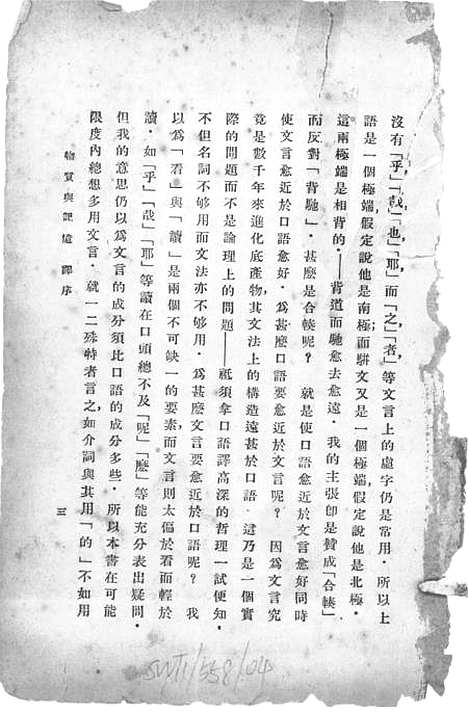 沒有「乎」「哉」「也」「耶」而「之」「者」等文言上的虛字仍是常用．所以上
語是一個極端假定說他是南極；而駢文又是一個極端假定說他是北極．
這兩極端是相背的．——背道而馳愈去愈遠．我的主張卽是贊成「合轍」
而反對「背馳」．甚麼是合轍呢？　就是使口語愈近於文言愈好同時
使文言愈近於口語愈好．爲甚麼口語要愈近於文言呢？　因爲文言究
竟是數千年來進化底產物，其文法上的構造遠甚於口語．這乃是一個實
際的問題而不是論理上的問題——祗須拿口語譯高深的哲理一試便知．
不但名詞不够用而文法亦不够用．爲甚麼文言要愈近於口語呢？　我
以爲「看」與「讀」是兩個不可缺一的要素；而文言則太偏於看而輕於
讀．如「乎」「哉」「耶」等讀在口頭總不及「呢」「麽」等能充分表出疑問．
但我的意思仍以爲文言的成分須比口語的成分多些．所以本書在可能
限度內總想多用文言．就一二殊特者言之，如介詞與其用「的」不如用
物質與記憶　譯序
三
SWTI/558/04